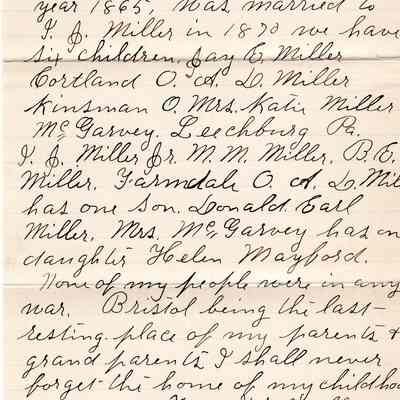 year 1865, was married to
I. J. Miller in 1870 we have
six children, Jay E. Miller
Cortland O. A. D. Miller
Kinsman O. Mrs. Katie Miller
McGarvey. Leechburg Pa.
I. J. Miller Jr. M. M. Miller, B. E.
Miller, Farmdale O. A. D. Mil
has one Son. Donald Earl
Miller, Mrs. McGarvey has on
daughter Helen Mayford.
None of my people were in any
war. Bristol being the last-
resting place of my parents +
grand parents I shall never
forget the home of my childhoo